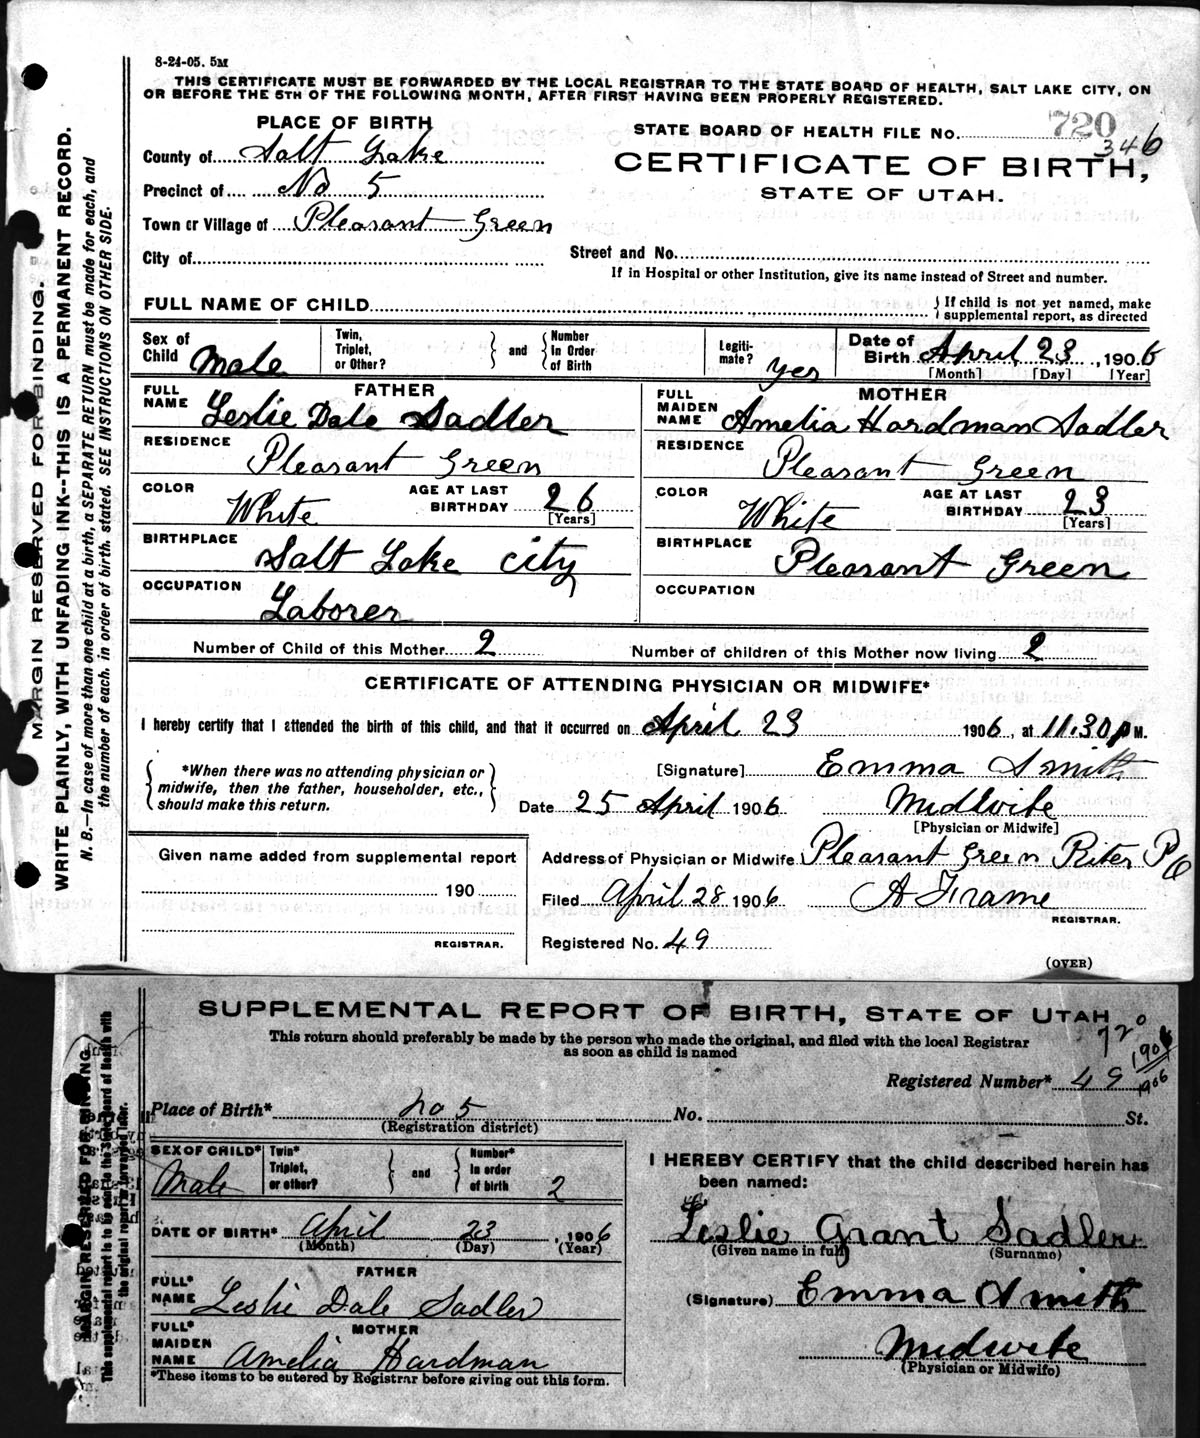 8-24-05. 5M
THIS CERTIFICATE MUST BE FORWARDED BY THE LOCAL REGISTRAR TO THE STATE BOARD OF HEALTH, SALT LAKE CITY, ON
OR BEFORE THE 5TH OF THE FOLLOWING MONTH, AFTER FIRST HAVING BEEN PROPERLY REGISTERED.
PLACE OF BIRTH
County of Salt Lake
Precinct of No 5
Town or Village of Pleasant Green
City of
STATE BOARD OF HEALTH FILE No. 720
346
CERTIFICATE OF BIRTH,
STATE OF UTAH.
Street and No.
If in Hospital or other Institution, give its name instead of Street and number.
FULL NAME OF CHILD
If child is not yet named, make
supplemental report, as directed
Sex of
Child Male
Twin,
Triplet,
or Other?
and
Number
In Order
of Birth
Legiti-
mate? yes
Date of
Birth April 23, 1906
[Month] [Day] [Year]
FATHER
FULL
NAME Leslie Dale Sadler
RESIDENCE
Pleasant Green
COLOR White
AGE AT LAST
BIRTHDAY 26
[Years]
BIRTHPLACE
Salt Lake City
OCCUPATION
Laborer
MOTHER
FULL
MAIDEN
NAME Amelia Hardman Sadler
RESIDENCE
Pleasant Green
COLOR White
AGE AT LAST
BIRTHDAY 23
[Years]
BIRTHPLACE
Pleasant Green
OCCUPATION
Number of Child of this Mother 2
Number of children of this Mother now living 2
CERTIFICATE OF ATTENDING PHYSICIAN OR MIDWIFE*
I hereby certify that I attended the birth of this child, and that it occurred on April 23 1906, at 11.30 P M.
*When there was no attending physician or
midwife, then the father, householder, etc.,
should make this return.
[Signature] Emma Smith
Date 25 April 1906 Midwife
[Physician or Midwife]
Given name added from supplemental report
190
REGISTRAR.
Address of Physician or Midwife Pleasant Green Riter P O
Filed April 28 1906 A Frame
REGISTRAR.
Registered No. 49
(OVER)
MARGIN RESERVED FOR BINDING.
WRITE PLAINLY, WITH UNFADING INK--THIS IS A PERMANENT RECORD.
N. B.—In case of more than one child at a birth, a SEPARATE RETURN must be made for each, and
the number of each, in order of birth, stated. SEE INSTRUCTIONS ON OTHER SIDE.
SUPPLEMENTAL REPORT OF BIRTH, STATE OF UTAH
This return should preferably be made by the person who made the original, and filed with the local Registrar
as soon as child is named
720
1906
1906
Registered Number* 49
Place of Birth* no 5 No. St.
(Registration district)
SEX OF CHILD*
Male
Twin*
Triplet,
or other?
and
Number*
In order
of birth 2
DATE OF BIRTH* April 23, 1906
(Month) (Day) (Year)
FATHER
FULL*
NAME Leslie Dale Sadler
MOTHER
FULL*
MAIDEN
NAME Amelia Hardman
*These items to be entered by Registrar before giving out this form.
I HEREBY CERTIFY that the child described herein has
been named:
Leslie Grant Sadler
(Given name in full) (Surname)
(Signature) Emma Smith
Midwife
(Physician or Midwife)
MARGIN RESERVED FOR BINDING
This supplemental report to be sent to the State Board of Health with
the original report if forwarded later.